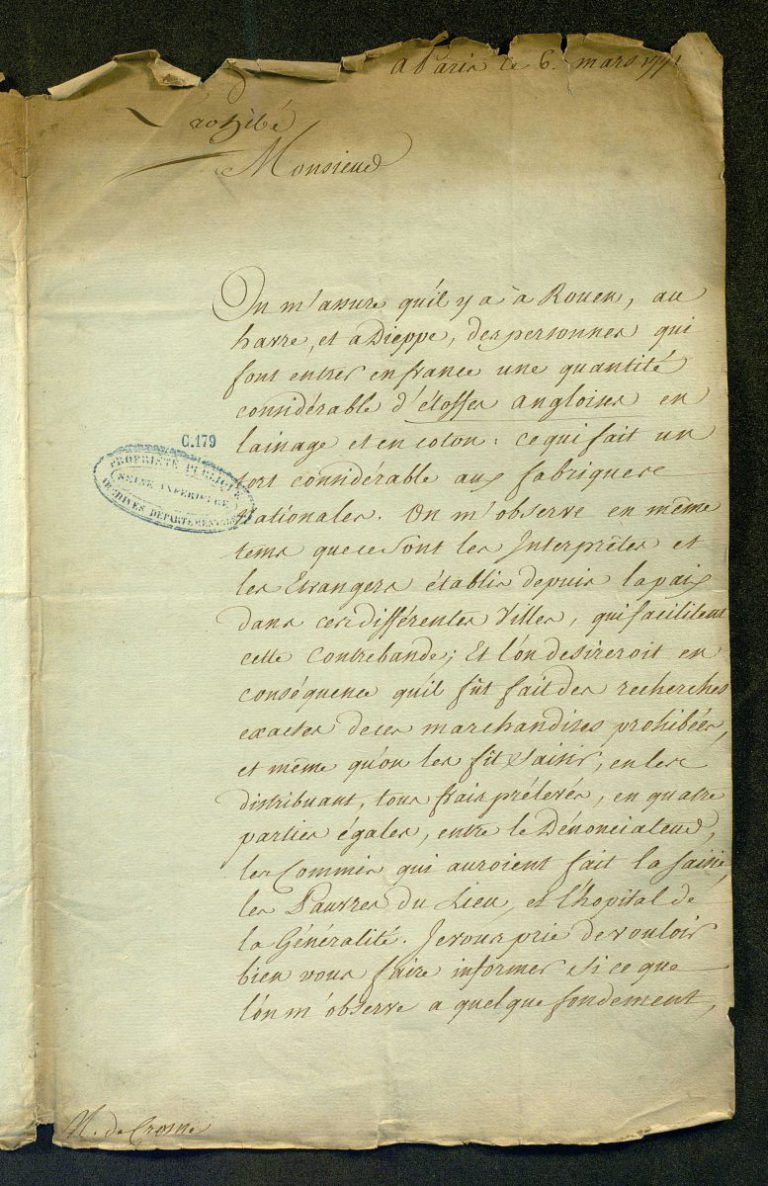 a Paris ce 6. mars 1771
Monsieur
On m'assure qu'il y a à Rouen, au
havre, et a Dieppe, des personnes qui
font entrer en france une quantité
considérable d'étoffes angloises en
lainage et en coton : ce qui fait un
C.179
PROPRIÉTÉ PUBLIQUE
SEINE INFÉRIEURE
ARCHIVES DÉPARTEMENTALES
tort considérable aux fabriques
Nationales. On m'observe en même
tems que ce sont les Interprêtes et
les Etrangers établis depuis la paix
dans ces différentes Villes, qui facilitent
cette Contrebande; Et l'on desireroit en
conséquence qu'il fût fait des recherches
exactes de ces marchandises prohibées,
et même qu'on les fît saisir, en les
distribuant, tous frais prélevés, en quatre
parties égales, entre le Dénonciateur,
les Commis qui auroient fait la saisie,
les Pauvres du Lieu, et l'hopital de
la Généralité. Je vous prie de vouloir
bien vous faire informer si ce que
l'on m'observe a quelque fondement,
M. de Crosne